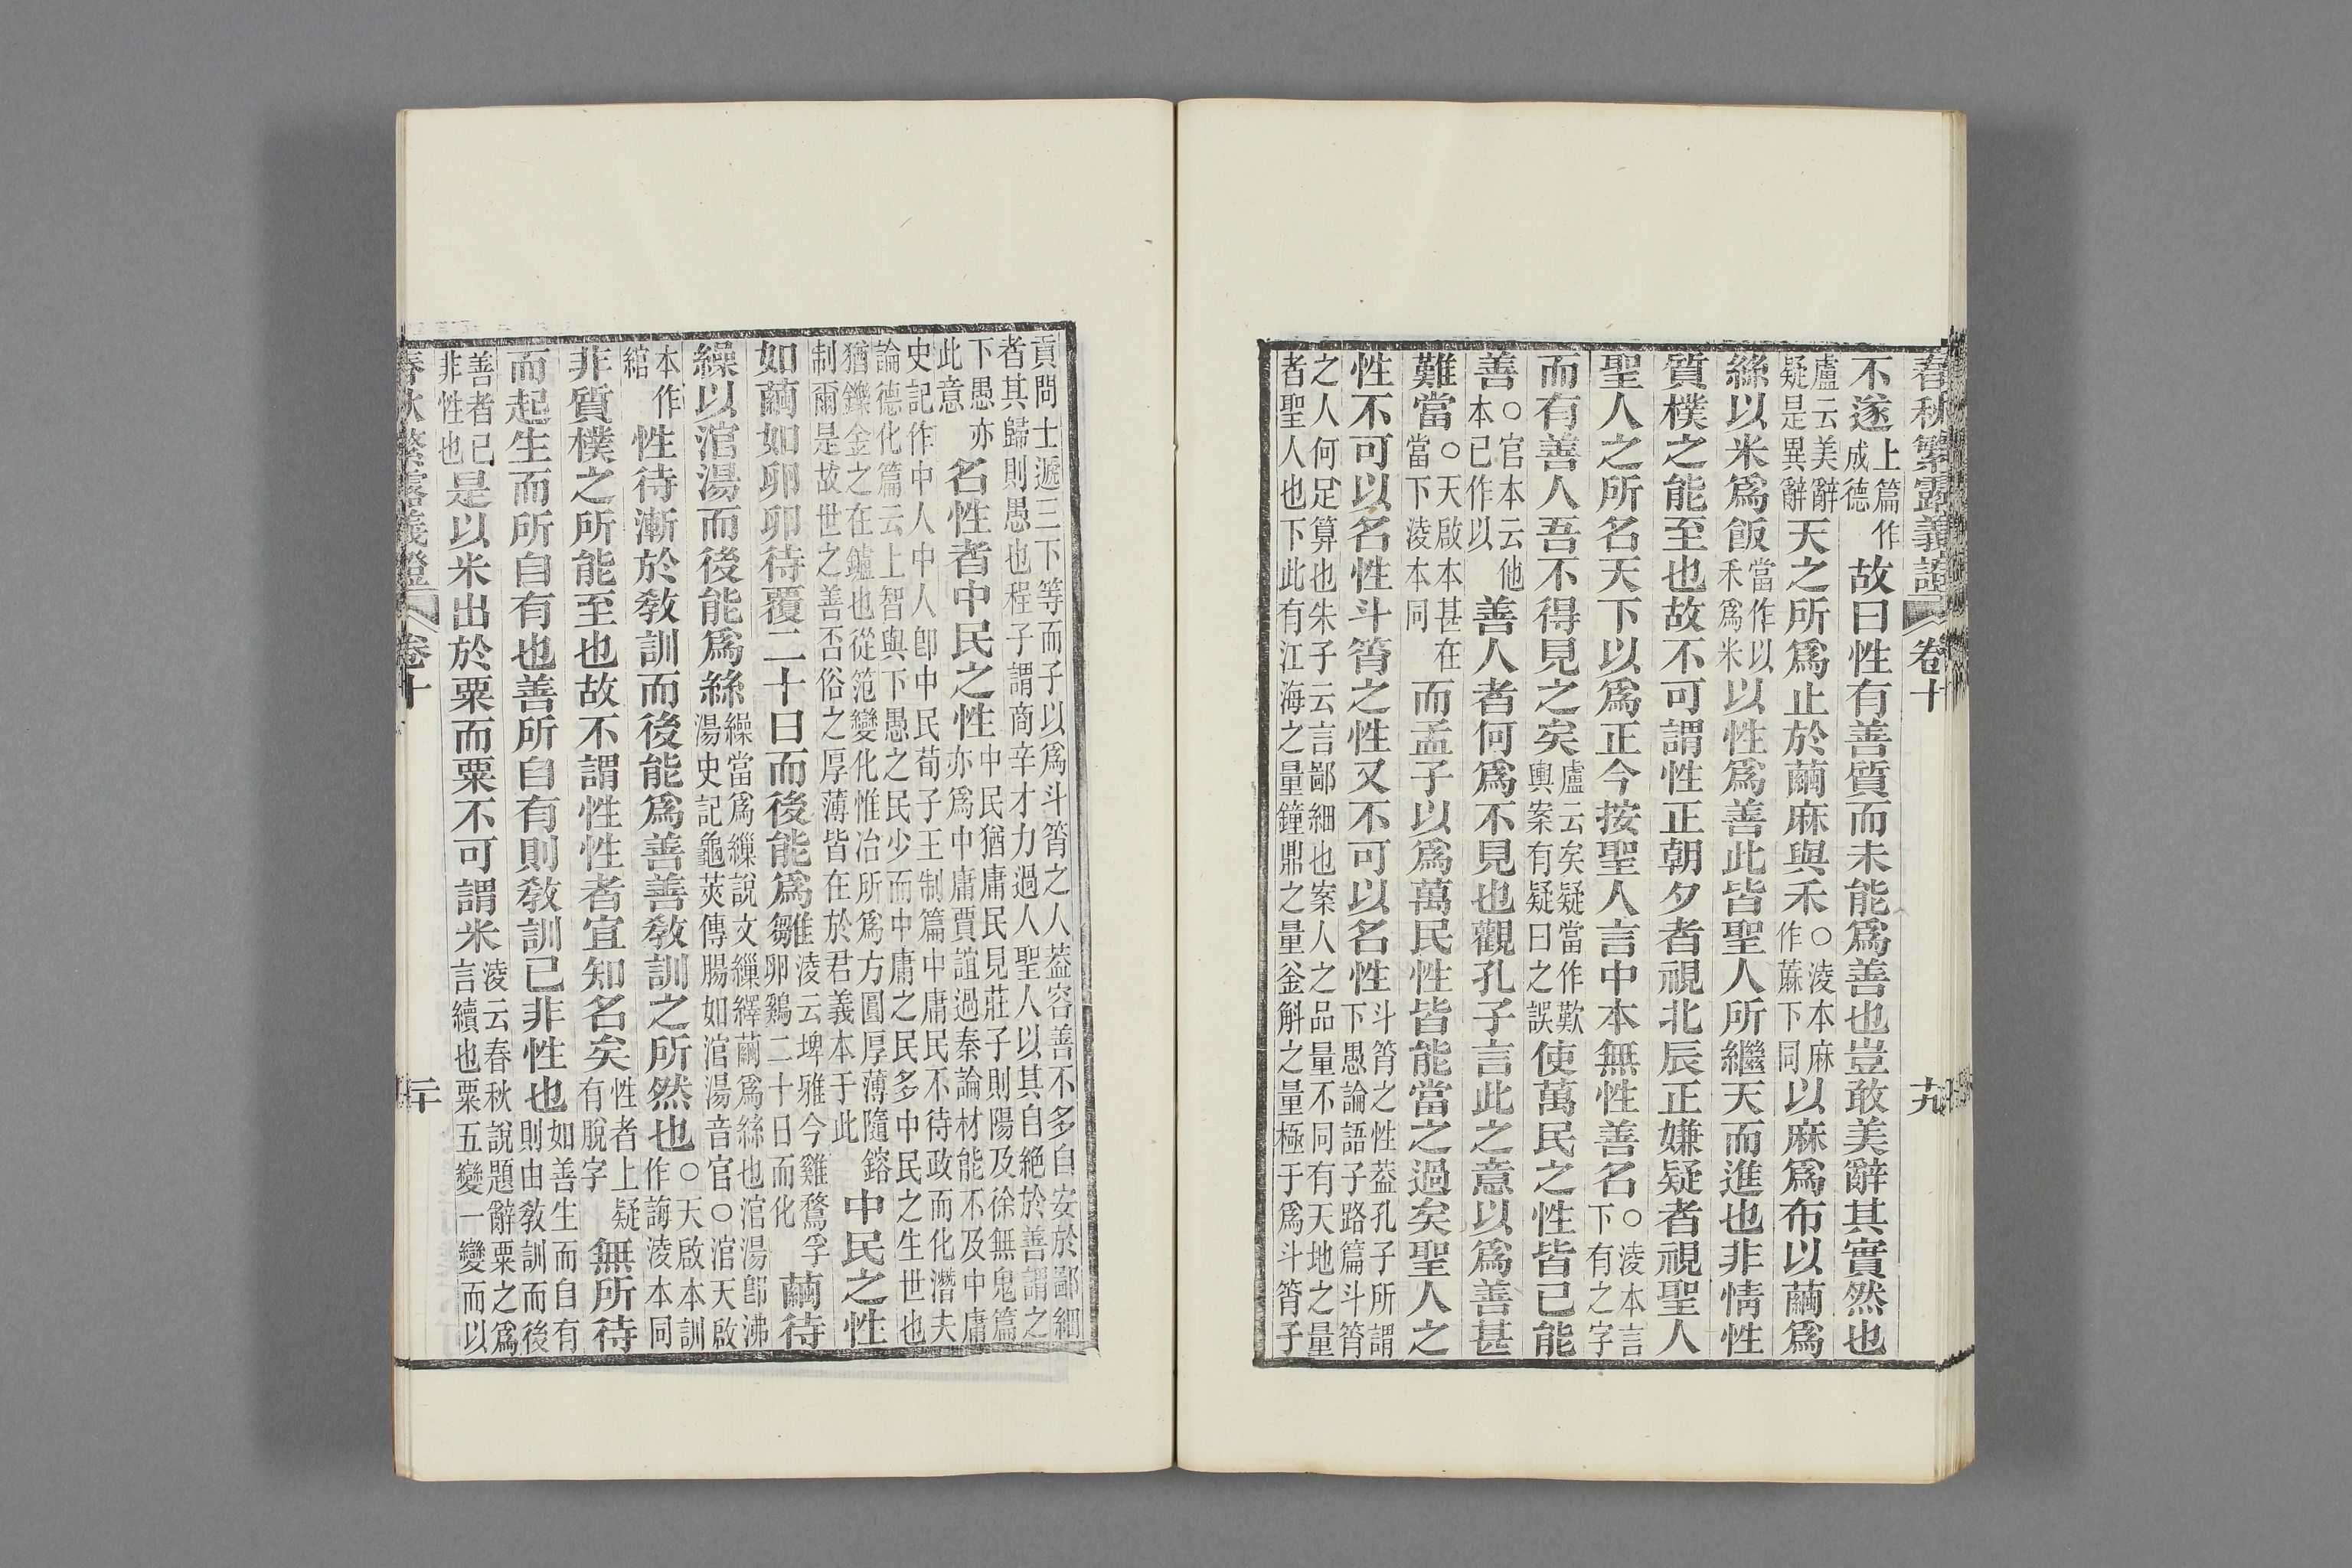 春秋繁露義證 卷十 十九
不遂上篇作成德故曰性有善質而未能爲善也豈敢美辭其實然也
盧云美辭疑是異辭天之所爲止於繭麻與禾○淩本麻作蔴下同以麻爲布以繭爲
絲以米爲飯當作以禾爲米以性爲善此皆聖人所繼天而進也非情性
質樸之能至也故不可謂性正朝夕者視北辰正嫌疑者視聖人
聖人之所名天下以爲正今按聖人言中本無性善名○淩本言下有之字
而有善人吾不得見之矣盧云矣疑當作歎輿案有疑曰之誤使萬民之性皆已能
善○官本云他本已作以善人者何爲不見也觀孔子言此之意以爲善甚
難當○天啟本甚在當下淩本同而孟子以爲萬民性皆能當之過矣聖人之
性不可以名性斗筲之性又不可以名性斗筲之性葢孔子所謂下愚論語子路篇斗筲
之人何足算也朱子云言鄙細也案人之品量不同有天地之量
者聖人也下此有江海之量鐘鼎之量釜斛之量極于爲斗筲子
貢問士遞三下等而子以爲斗筲之人葢容善不多自安於鄙細
者其歸則愚也程子謂商辛才力過人聖人以其自絕於善謂之
下愚亦此意名性者中民之性中民猶庸民見莊子則陽及徐無鬼篇亦爲中庸賈誼過秦論材能不及中庸
史記作中人中人卽中民荀子王制篇中庸民不待政而化潛夫
論德化篇云上智與下愚之民少而中庸之民多中民之生世也
猶鑠金之在鑪也從笵變化惟冶所爲方圓厚薄隨鎔
制爾是故世之善否俗之厚薄皆在於君義本于此中民之性
如繭如卵卵待覆二十日而後能爲雛淩云埤雅今雞鶩孚卵鷄二十日而化繭待
繰以涫湯而後能爲絲繰當爲繅說文繅繹繭爲絲也涫湯卽沸湯史記龜莢傳腸如涫湯音官○涫天啟
本作綰性待漸於敎訓而後能爲善善敎訓之所然也○天啟本訓作誨淩本同
非質樸之所能至也故不謂性性者宜知名矣性者上疑有脫字無所待
而起生而所自有也善所自有則敎訓已非性也如善生而自有則由敎訓而後
善者已非性也是以米出於粟而粟不可謂米淩云春秋說題辭粟之爲言續也粟五變一變而以
春秋繁露義證 卷十 二十